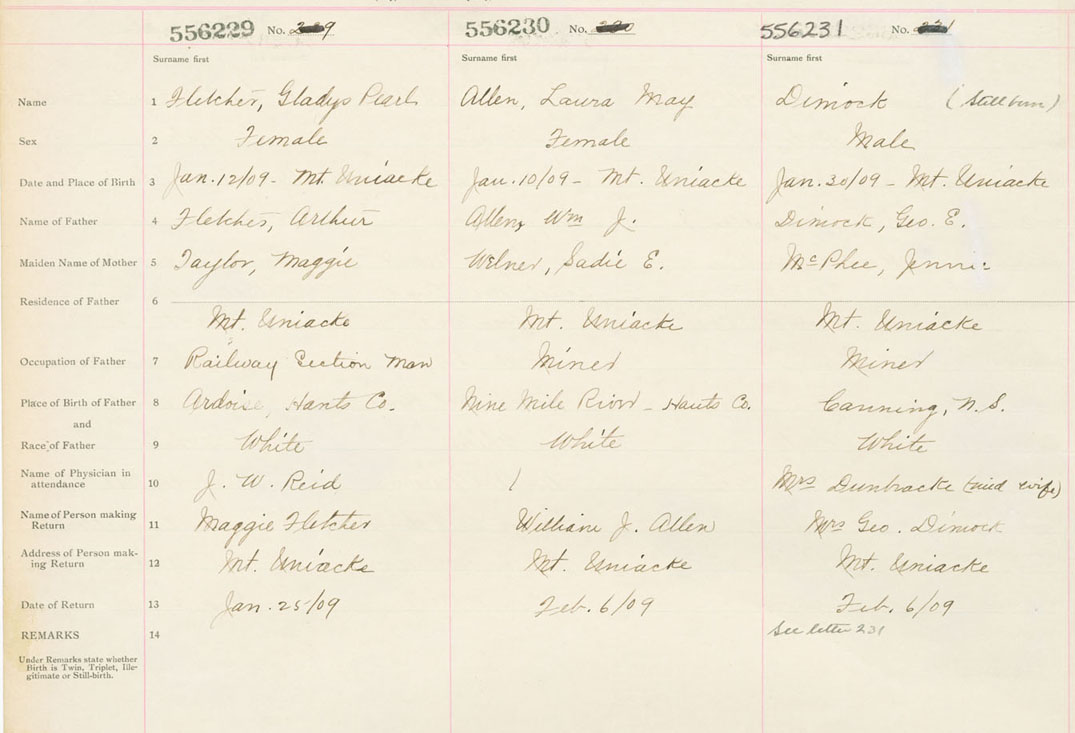 556229 No. 229 556230 No. 230 556231 No. 231
Surname first Surname first Surname first
Name 1 Fletcher, Gladys Pearl Allen, Laura May Dimock (Still born)
Sex 2 Female Female Male
Date and Place of Birth 3 Jan. 12/09 - Mt. Uniacke Jan. 10/09 - Mt. Uniacke Jan. 30/09 - Mt. Uniacke
Name of Father 4 Fletcher, Arthur Allen, Wm J. Dimock, Geo. E.
Maiden Name of Mother 5 Taylor, Maggie Sadie E. McPhee, Jennie
Residence of Father 6
Mt. Uniacke Mt. Uniacke Mt. Uniacke
Occupation of Father 7 Railway Section Man Miner Miner
Place of Birth of Father 8 Ardoise, Hants Co. Nine Mile River - Hants Co. Canning, N.S.
and
Race of Father 9 White White White
Name of Physician in
attendance 10 J. W. Reid / Mrs Dunbracke (mid wife)
Name of Person making
Return 11 Maggie Fletcher William J. Allen Mrs Geo. Dimock
Address of Person mak-
ing Return 12 Mt. Uniacke Mt. Uniacke Mt. Uniacke
Date of Return 13 Jan. 25/09 Feb. 6/09 Feb. 6/09
REMARKS 14 See letter 231
Under Remarks state whether
Birth is Twin, Triplet, Ille-
gitimate or Still-birth.